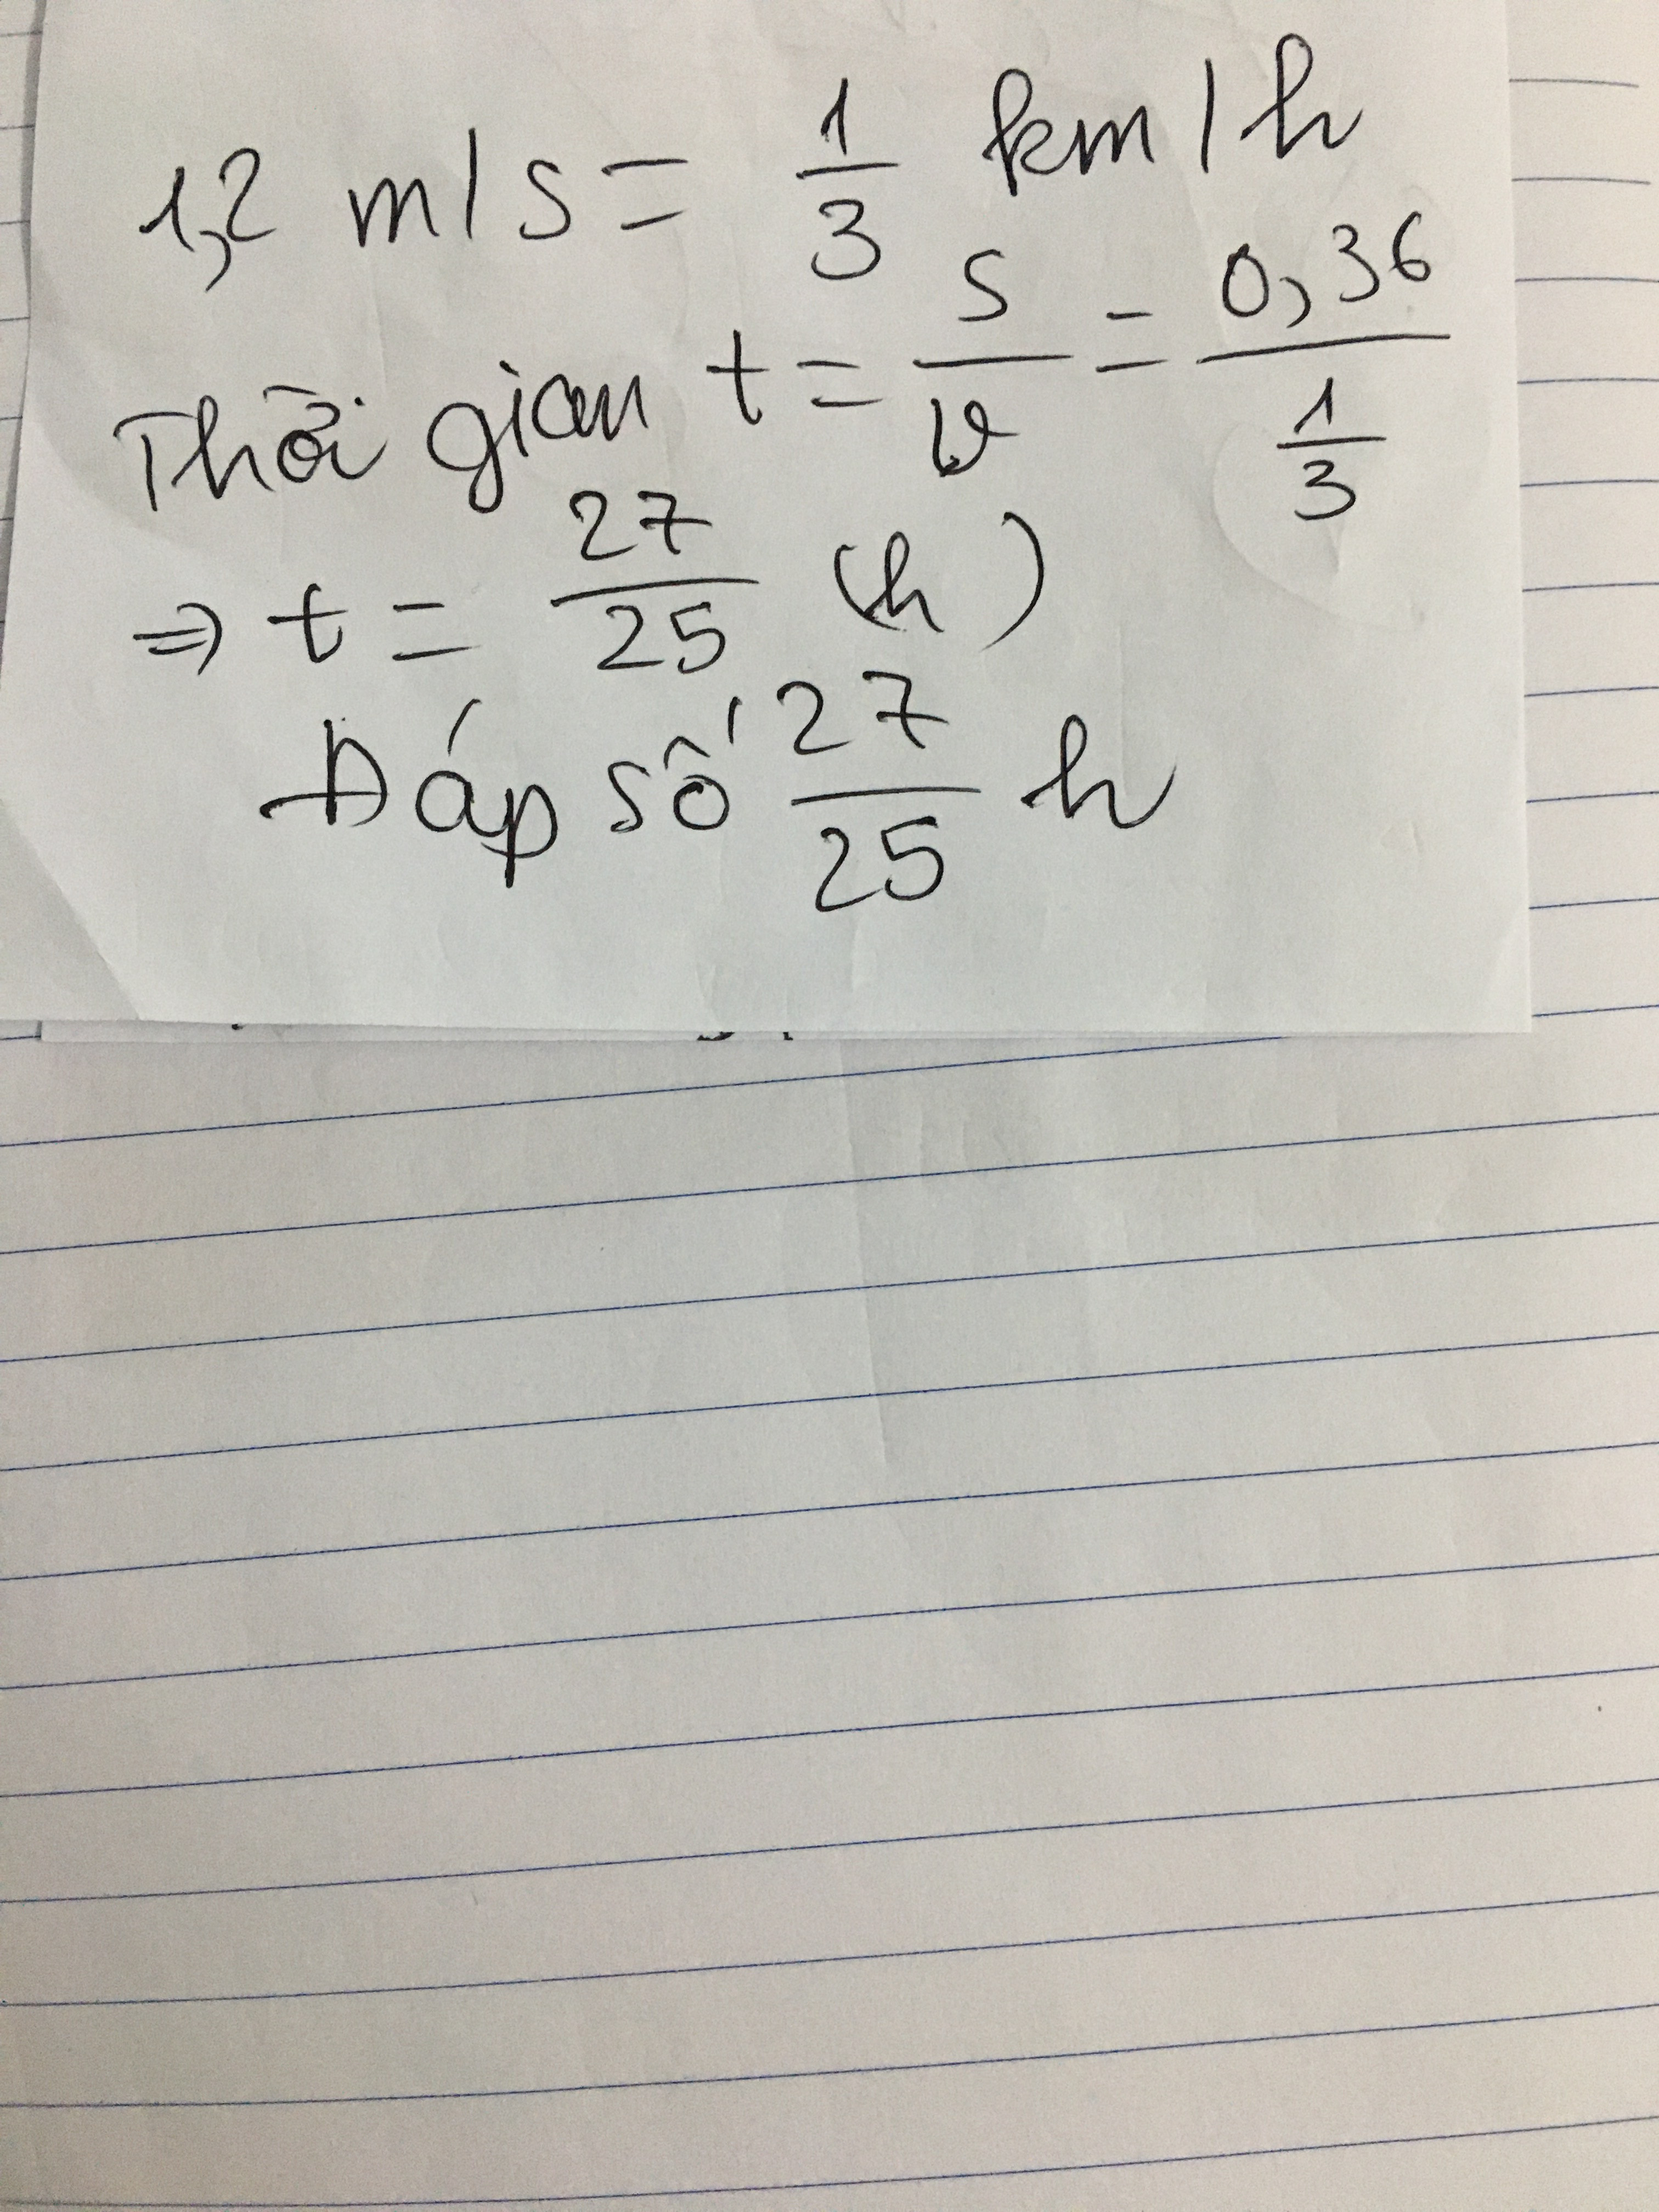 1,2 m/s = 1/3 km/h
Thời gian t = s/v = 0,36/(1/3)
⇒ t = 27/25 (h)
Đáp số 27/25 h